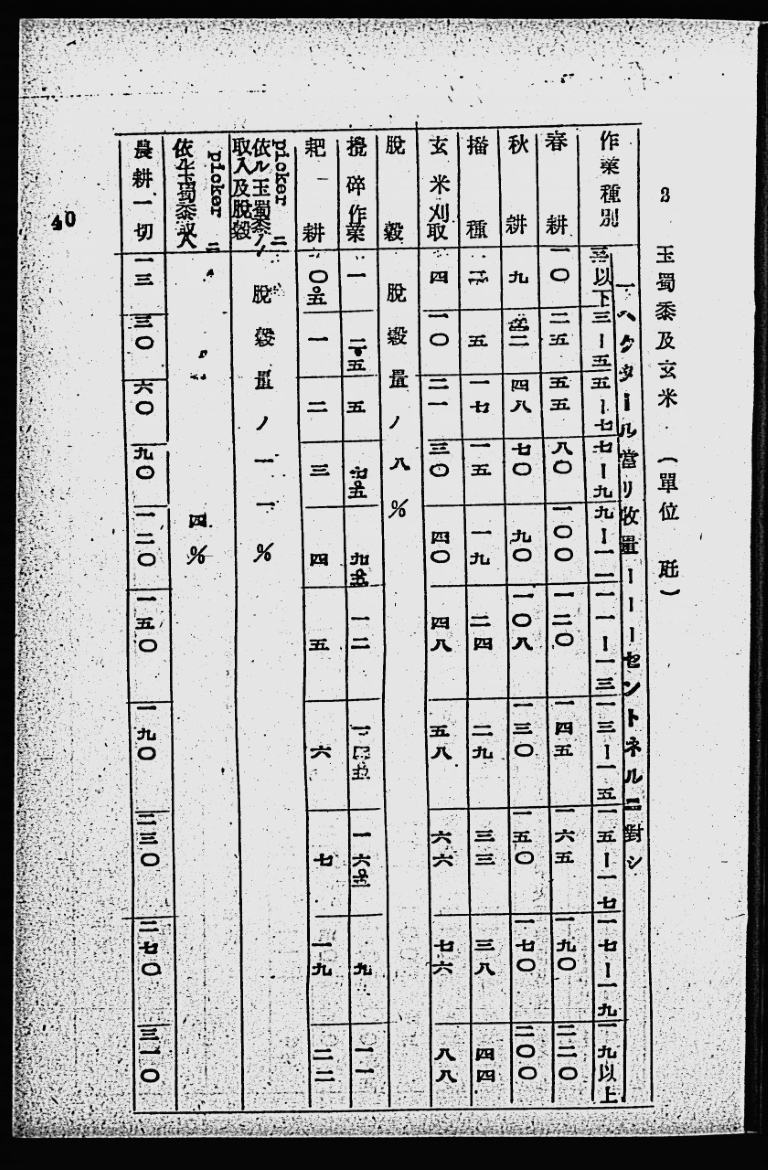 2 玉蜀黍及玄米 (單位 瓩)
一ヘクタール當リ收量ーーーセントネルニ對シ
作業種別 三以下 三ー五 五ー七 七ー九 九ー一一 一一ー一三 一三ー一五 一五ー一七 一七ー一九 一九以上
春耕 一〇 二五 五五 八〇 一〇〇 一二〇 一四五 一六五 一九〇 二二〇
秋耕 九 四八 七〇 九〇 一〇八 一三〇 一五〇 一七〇 二〇〇
播種 五 一七 一五 一九 二四 二九 三三 三八 四四
玄米刈取 四 一〇 二一 三〇 四〇 四八 五八 六六 七六 八八
脫穀 脫穀量ノ八%
攪碎作業 一 二・五 五 七・五 九・五 一二 一四五 一六 九 二一
耙耕 〇・五 一 二 三 四 五 六 七 一九 二二
picker ニ依ル玉蜀黍ノ取入及脫穀 脫穀量ノ一一%
picker ニ依ル玉蜀黍取入 四%
農耕一切 一三 三〇 六〇 九〇 一二〇 一五〇 一九〇 二三〇 二七〇 三一〇
40